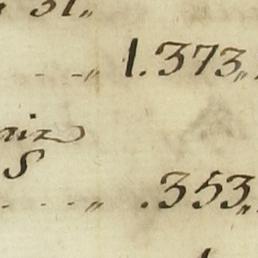 31,,
- - ,, 1.373,,
niz
S
- - - ,, .353,,